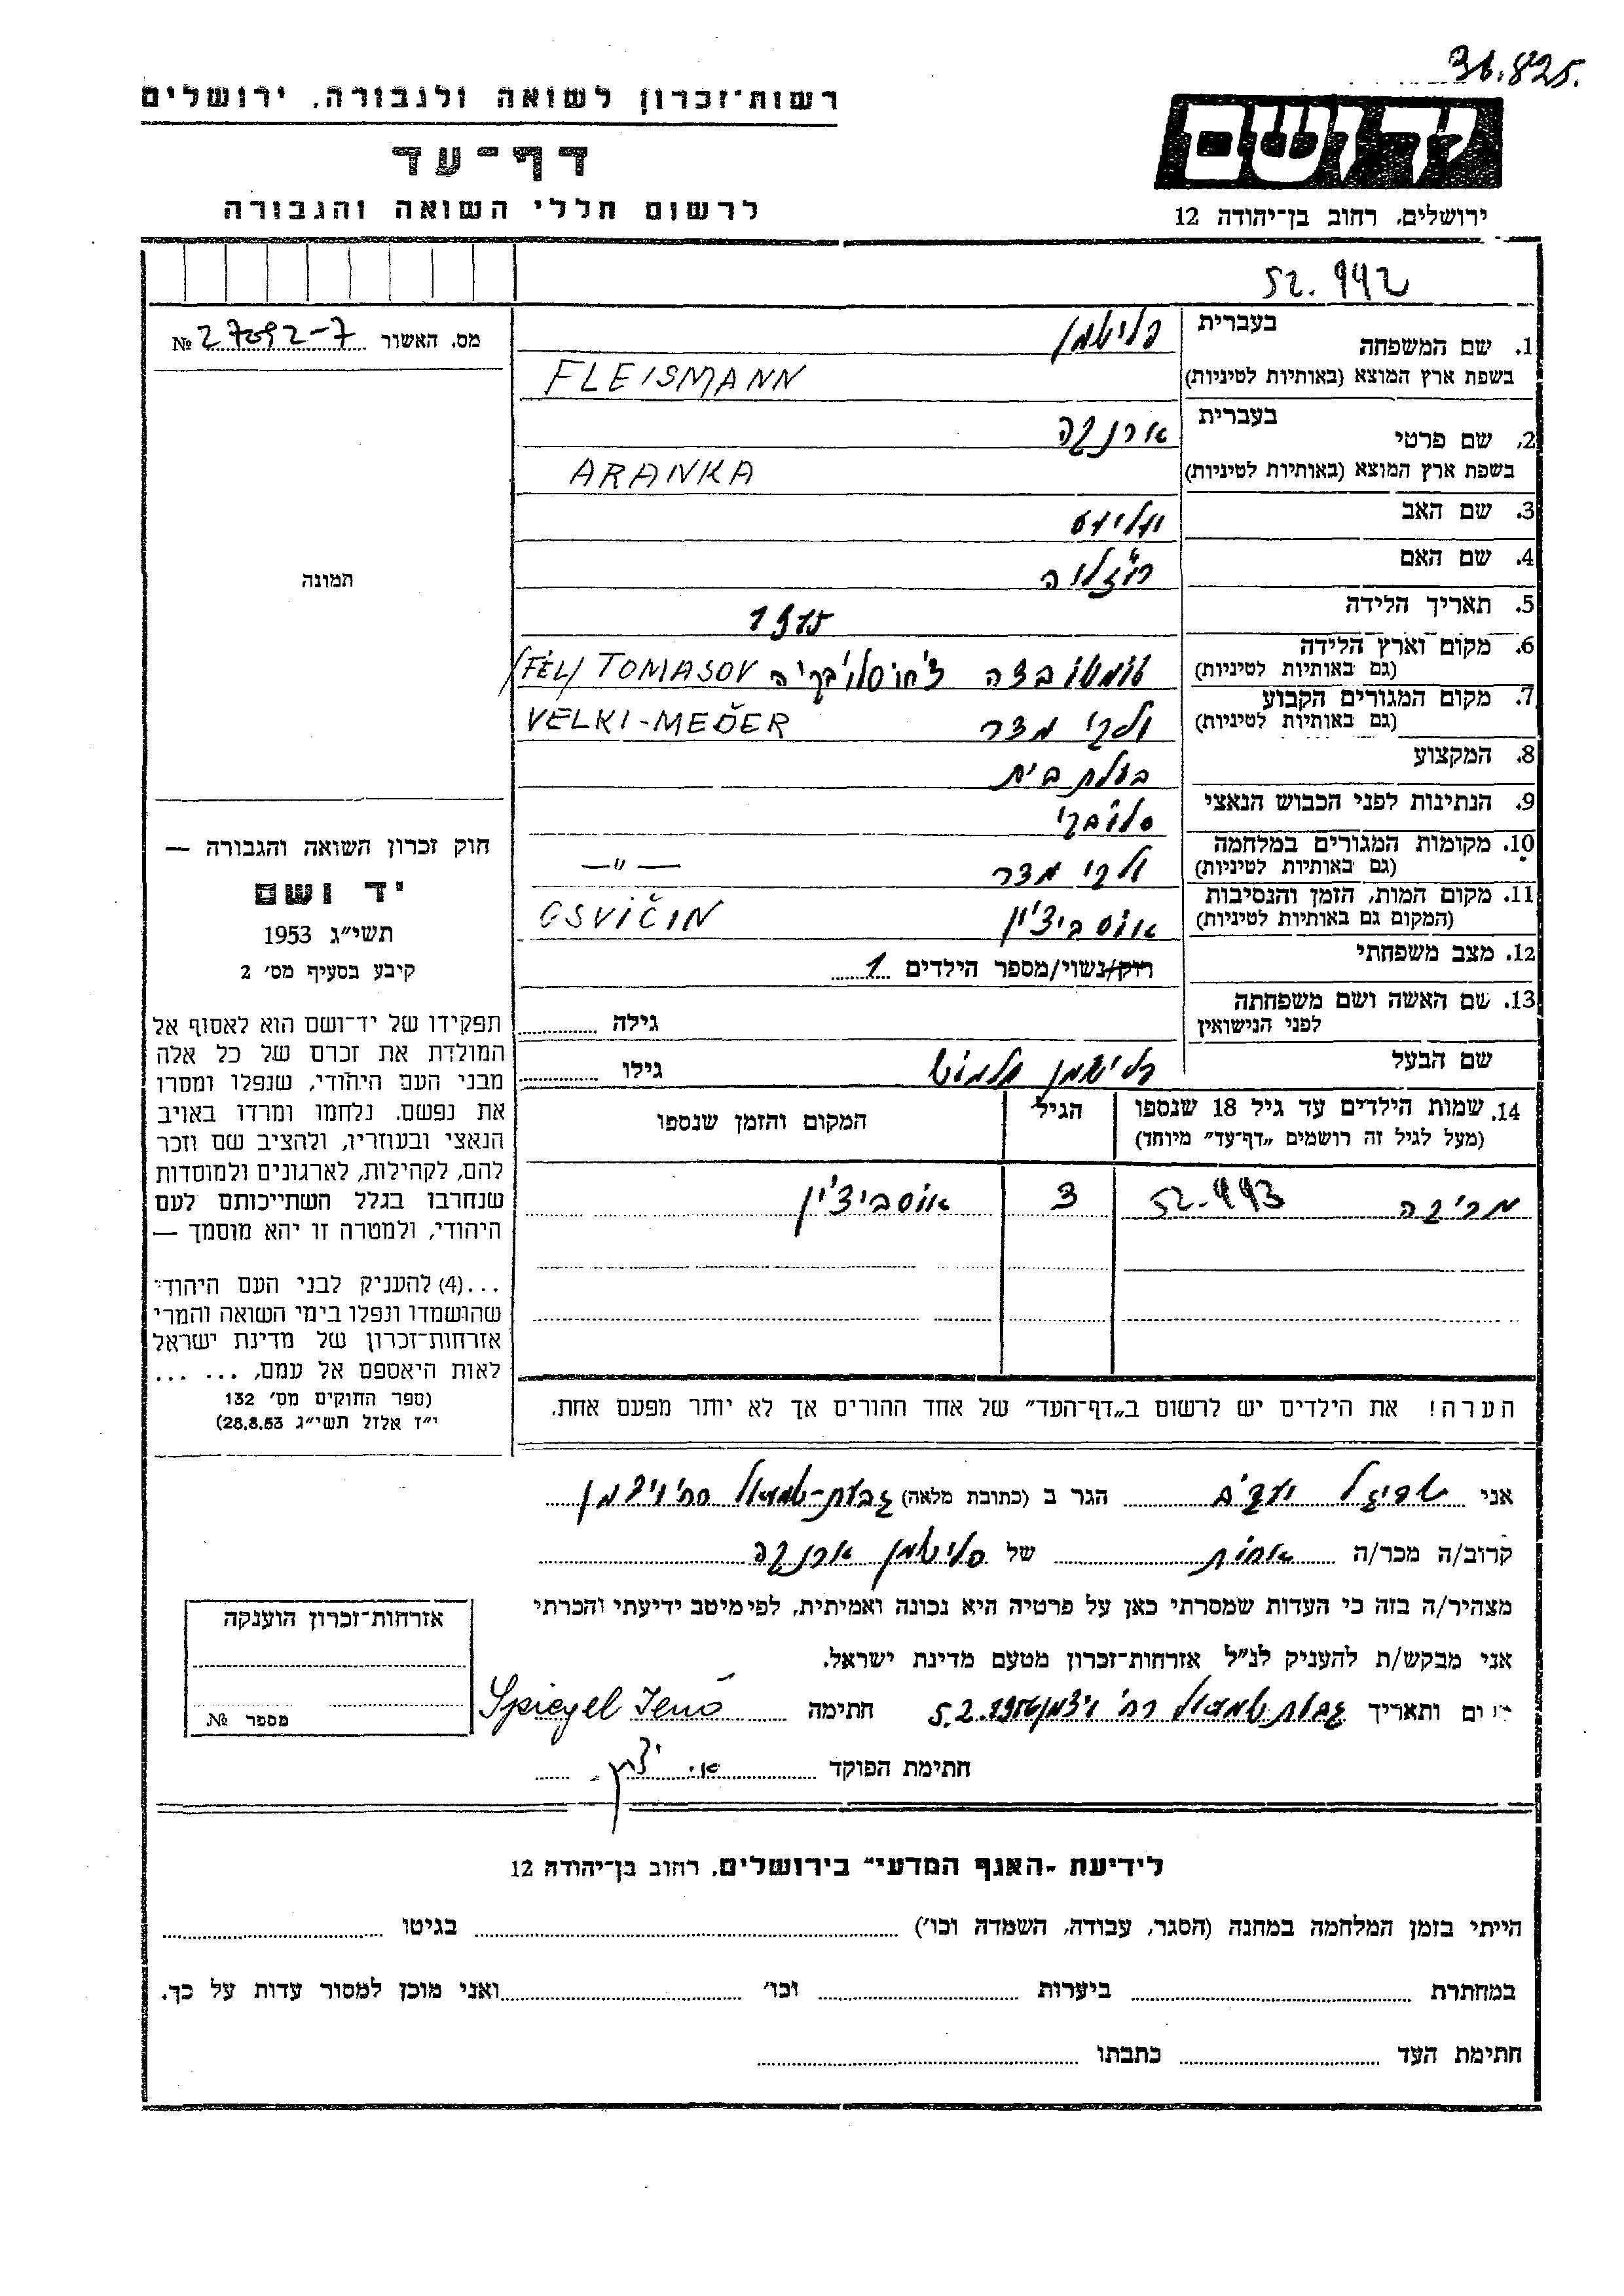 36.825.
רשות־זכרון לשואה ולגבורה, ירושלים
יד ושם
דף־עד
לרשום חללי השואה והגבורה
ירושלים, רחוב בן־יהודה 12
52.442
1. שם המשפחה בעברית פלישמן
בשפת ארץ המוצא (באותיות לטיניות) FLEISMANN
2. שם פרטי בעברית ארנקה
בשפת ארץ המוצא (באותיות לטיניות) ARANKA
3. שם האב
4. שם האם רוזליה
5. תאריך הלידה 1915
6. מקום וארץ הלידה (גם באותיות לטיניות) (FÉL) TOMASOV
7. מקום המגורים הקבוע (גם באותיות לטיניות) ולקי מדר VELKI-MEĎER
8. המקצוע בעלת בית
9. הנתינות לפני הכבוש הנאצי סלובקי
10. מקומות המגורים במלחמה (גם באותיות לטיניות) ולקי מדר —״—
11. מקום המות, הזמן והנסיבות (המקום גם באותיות לטיניות) אוסביצ'ין OSVIČIN
12. מצב משפחתי רוק/נשוי/מספר הילדים 1
13. שם האשה ושם משפחתה לפני הנישואין גילה
שם הבעל פלישמן גילו
14. שמות הילדים עד גיל 18 שנספו הגיל המקום והזמן שנספו
(מעל לגיל זה רושמים „דף־עד״ מיוחד)
מריקה 52.443 3 אוסביצ'ין
הערה! את הילדים יש לרשום ב„דף־העד״ של אחד ההורים אך לא יותר מפעם אחת.
מס. האשור 27092-7 №
תמונה
חוק זכרון השואה והגבורה —
יד ושם
תשי״ג 1953
קיבע בסעיף מס׳ 2
תפקידו של יד־ושם הוא לאסוף אל
המולדת את זכרם של כל אלה
מבני העם היהודי, שנפלו ומסרו
את נפשם. נלחמו ומרדו באויב
הנאצי ובעוזריו, ולהציב שם וזכר
להם, לקהילות, לארגונים ולמוסדות
שנחרבו בגלל השתייכותם לעם
היהודי, ולמטרה זו יהא מוסמך —
...(4) להעניק לבני העם היהודי
שהושמדו ונפלו בימי השואה והמרי
אזרחות־זכרון של מדינת ישראל
לאות היאספם אל עמם, ... ...
(ספר החוקים מס׳ 132
י״ז אלול תשי״ג 28.8.53)
אני שפיגל יעקב הגר ב (כתובת מלאה) גבעת-שמואל רח' ויצמן
קרוב/ה מכר/ה אחות של פלישמן ארנקה
מצהיר/ה בזה כי העדות שמסרתי כאן על פרטיה היא נכונה ואמיתית, לפי מיטב ידיעתי והכרתי
אני מבקש/ת להעניק לנ״ל אזרחות־זכרון מטעם מדינת ישראל.
ום ותאריך גבעת שמואל רח' ויצמן 5.2.1956 חתימה Spiegel Jenő
חתימת הפוקד
אזרחות־זכרון הוענקה
מספר №
לידיעת ־האגף המדעי״ בירושלים, רחוב בן־יהודה 12
הייתי בזמן המלחמה במחנה (הסגר, עבודה, השמדה וכו׳) בגיטו
במחתרת ביערות וכו׳ ואני מוכן למסור עדות על כך.
חתימת העד כתבתו